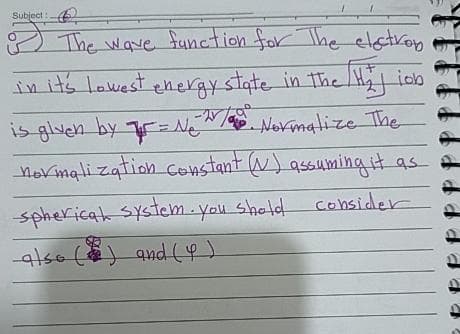 Subject: 6
The wave function for The electron
in it's lowest energy state in the H₂⁺ ion
is given by Ψ = Ne^-2r/a° . Normalize The
normalization constant (N) assuming it as
spherical system. you shold consider
also ( ) and (φ)